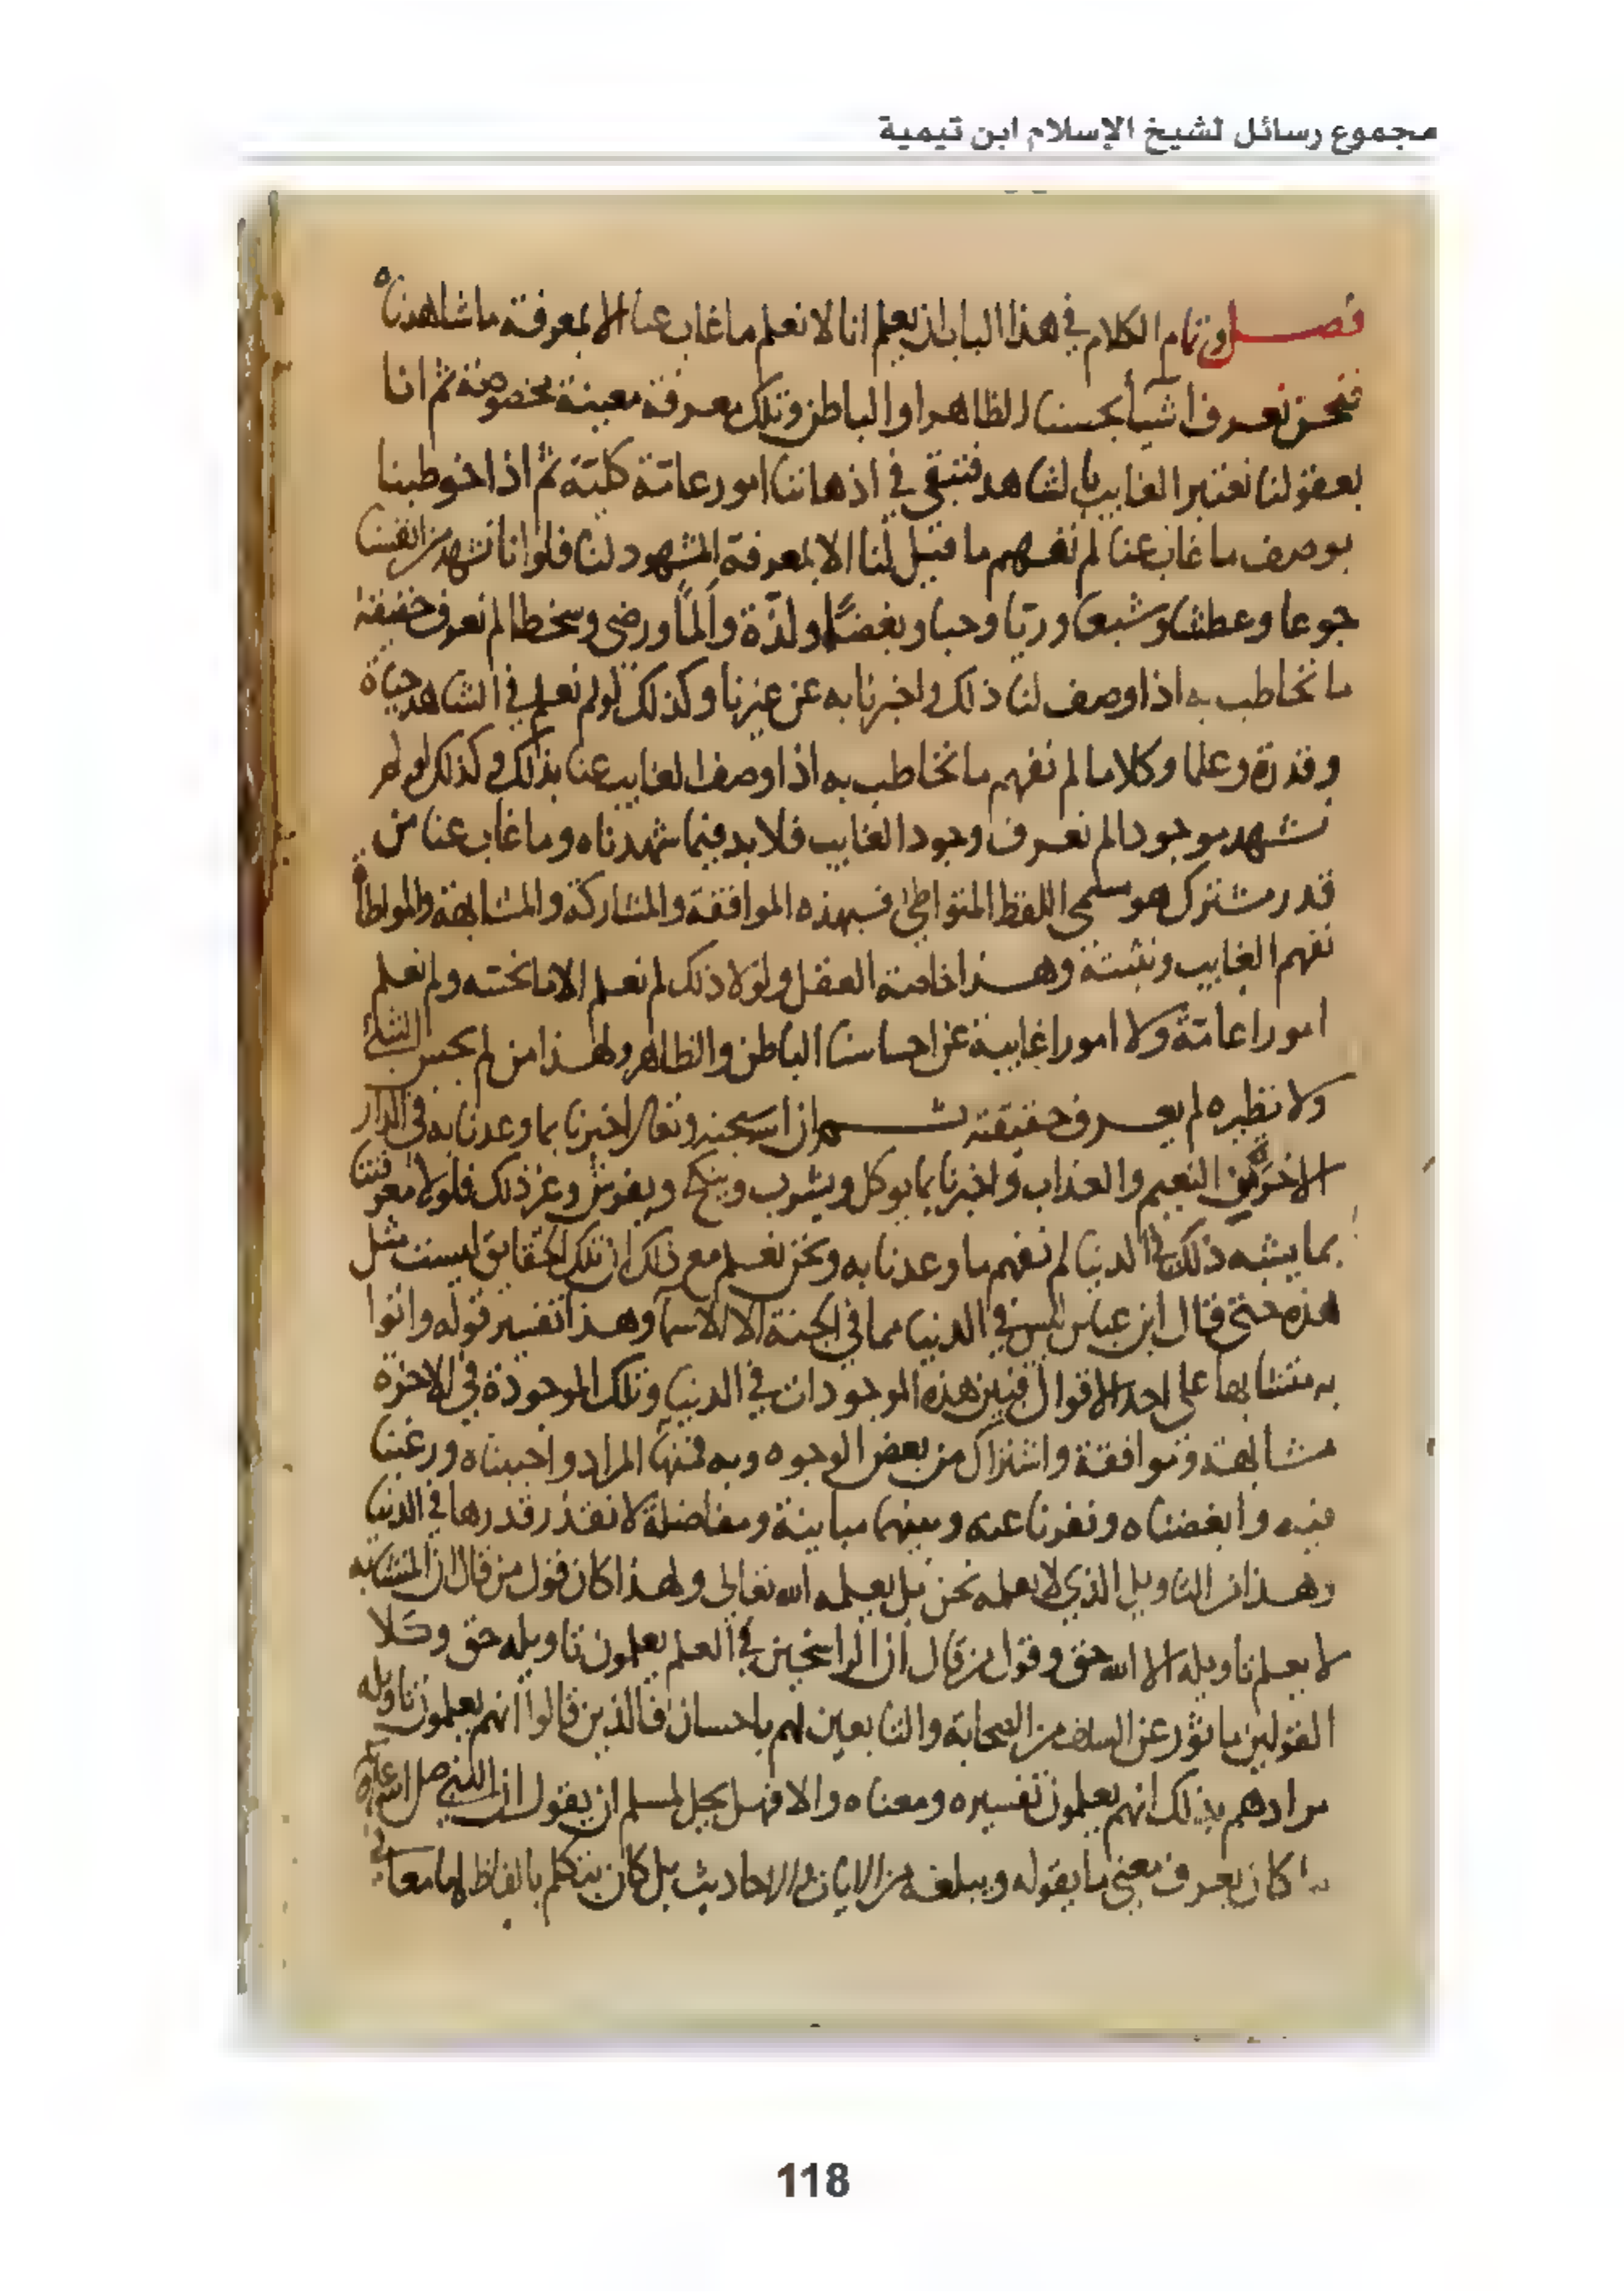 مجموع رسائل لشيخ الإسلام ابن تيمية
فصل وتمام الكلام في هذا الباب ان يعلم انا لا نعلم ما غاب عنا الا بمعرفة ما شاهدناه
فنحن نعرف اشيأ بحسنا الظاهر او الباطن وتلك معرفة معينة مخصوصة ثم انا
بعقولنا نعتبر الغايب بالشاهد فتبقى في اذهاننا امور عامّة كليّة ثم اذا خوطبنا
بوصف ما غاب عنا لم نفهم ما قيل لنا الا بمعرفة المشهود لنا فلو انا نشهد من انفسنا
جوعا وعطشا وشبعا وريّا وحبا وبغضًا ولذّة وألمًا ورضى وسخطا لم نعرف حقيقة
ما نخاطب به اذا وصف لنا ذلك واخبرنا به عن غيرنا وكذلك لو لم نعلم في الشاهد حياة
وقدرة وعلما وكلاما لم نفهم ما نخاطب به اذا وصف الغايب عنا بذلك وكذلك لو لم
نشهد موجودا لم نعرف وجود الغايب فلا بد فيما شهدناه وما غاب عنا من
قدر مشترك هو مسمى اللفظ المتواطئ فبهذه الموافقة والمشاركة والمشابهة والمواطأة
نفهم الغايب ونثبته وهذا خاصة العقل ولولا ذلك لم نعلم الا ما نحسه ولم نعلم
امورا عامّة ولا امورا غايبة عن احساسنا الباطن والظاهر ولهذا من لم يحس الشئ
ولا نظيره لم يعرف حقيقته ثم ان الله سبحنه وتعالى اخبرنا بما وعدنا به في الدار
الاخرة من النعيم والعذاب واخبرنا بما يوكل ويشرب وينكح ويفرش وغير ذلك فلولا معرفتنا
بما يشبه ذلك في الدنيا لم نفهم ما وعدنا به ونحن نعلم مع ذلك ان تلك الحقايق ليست مثل
هذه حتى قال ابن عباس ليس في الدنيا مما في الجنة الا الاسمأ وهذا تفسير قوله واتوا
به متشابها على احد الاقوال فبين هذه الموجودات في الدنيا وتلك الموجودة في الاخرة
مشابهة وموافقة واشتراك من بعض الوجوه وبه فهمنا المراد واحببناه ورغبنا
فيه وابغضناه ونفرنا عنه وبينهما مباينة ومفاضلة لا نقدر قدرها في الدنيا
وهذا من التاويل الذي لا يعلمه نحن بل يعلمه الله تعالى ولهذا كان قول من قال ان المتشابه
لا يعلم تاويله الا الله حق وقول من قال ان الراسخين في العلم يعلمون تاويله حق وكلا
القولين ماثور عن السلف من الصحابة والتابعين لهم باحسان فالذين قالوا انهم يعلمون تاويله
مرادهم بذلك انهم يعلمون تفسيره ومعناه والا فهل يحل لمسلم ان يقول ان النبي صلى الله عليه
ما كان يعرف معنى ما يقوله ويبلغه من الايات والاحاديث بل كان يتكلم بالفاظ لها معان
118